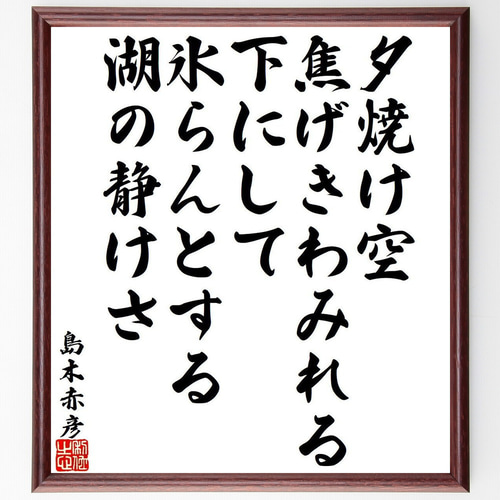 夕焼け空
焦げきわみれる
下にして
氷らんとする
湖の静けさ
島木赤彦